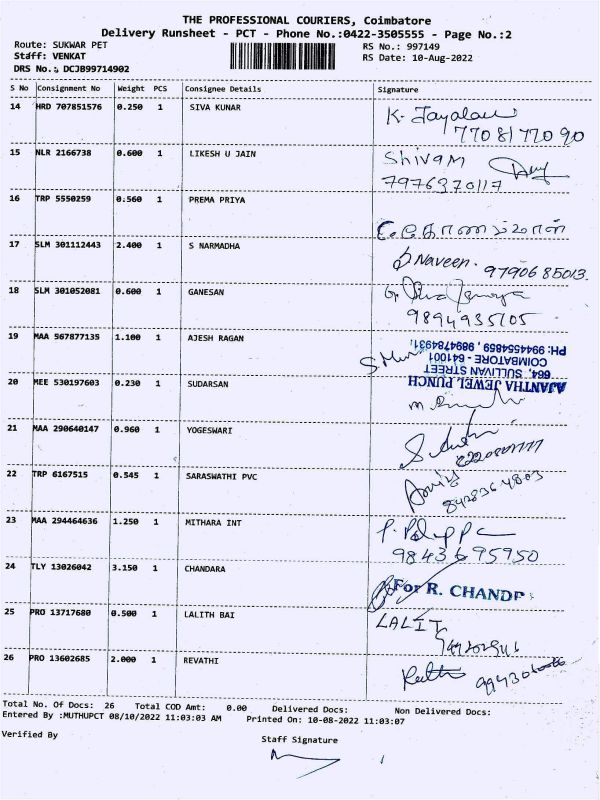 THE PROFESSIONAL COURIERS, Coimbatore
Delivery Runsheet - PCT - Phone No.:0422-3505555 - Page No.:2
Route: SUKWAR PET RS No.: 997149
Staff: VENKAT RS Date: 10-Aug-2022
DRS No.: DCJB99714902
S No Consignment No Weight PCS Consignee Details Signature
14 HRD 707851576 0.250 1 SIVA KUNAR K. Jayalau
7708177090
15 NLR 2166738 0.600 1 LIKESH U JAIN Shivam
7976370117
16 TRP 5550259 0.560 1 PREMA PRIYA
17 SLM 301112443 2.400 1 S NARMADHA S Naveen. 9790685013.
18 SLM 301052081 0.600 1 GANESAN
9894935105
19 MAA 567877135 1.100 1 AJESH RAGAN
AJANTHA JEWEL PUNCH
664, SULLIVAN STREET
COIMBATORE - 641001
PH: 9944554859, 9894784931
20 MEE 530197603 0.230 1 SUDARSAN
21 MAA 290640147 0.960 1 YOGESWARI
22 TRP 6167515 0.545 1 SARASWATHI PVC
8428364803
23 MAA 294464636 1.250 1 MITHARA INT
9843695950
24 TLY 13026042 3.150 1 CHANDARA For R. CHANDR
25 PRO 13717680 0.500 1 LALITH BAI LALIT
26 PRO 13602685 2.000 1 REVATHI
Total No. Of Docs: 26 Total COD Amt: 0.00 Delivered Docs: Non Delivered Docs:
Entered By :MUTHUPCT 08/10/2022 11:03:03 AM Printed On: 10-08-2022 11:03:07
Verified By
Staff Signature